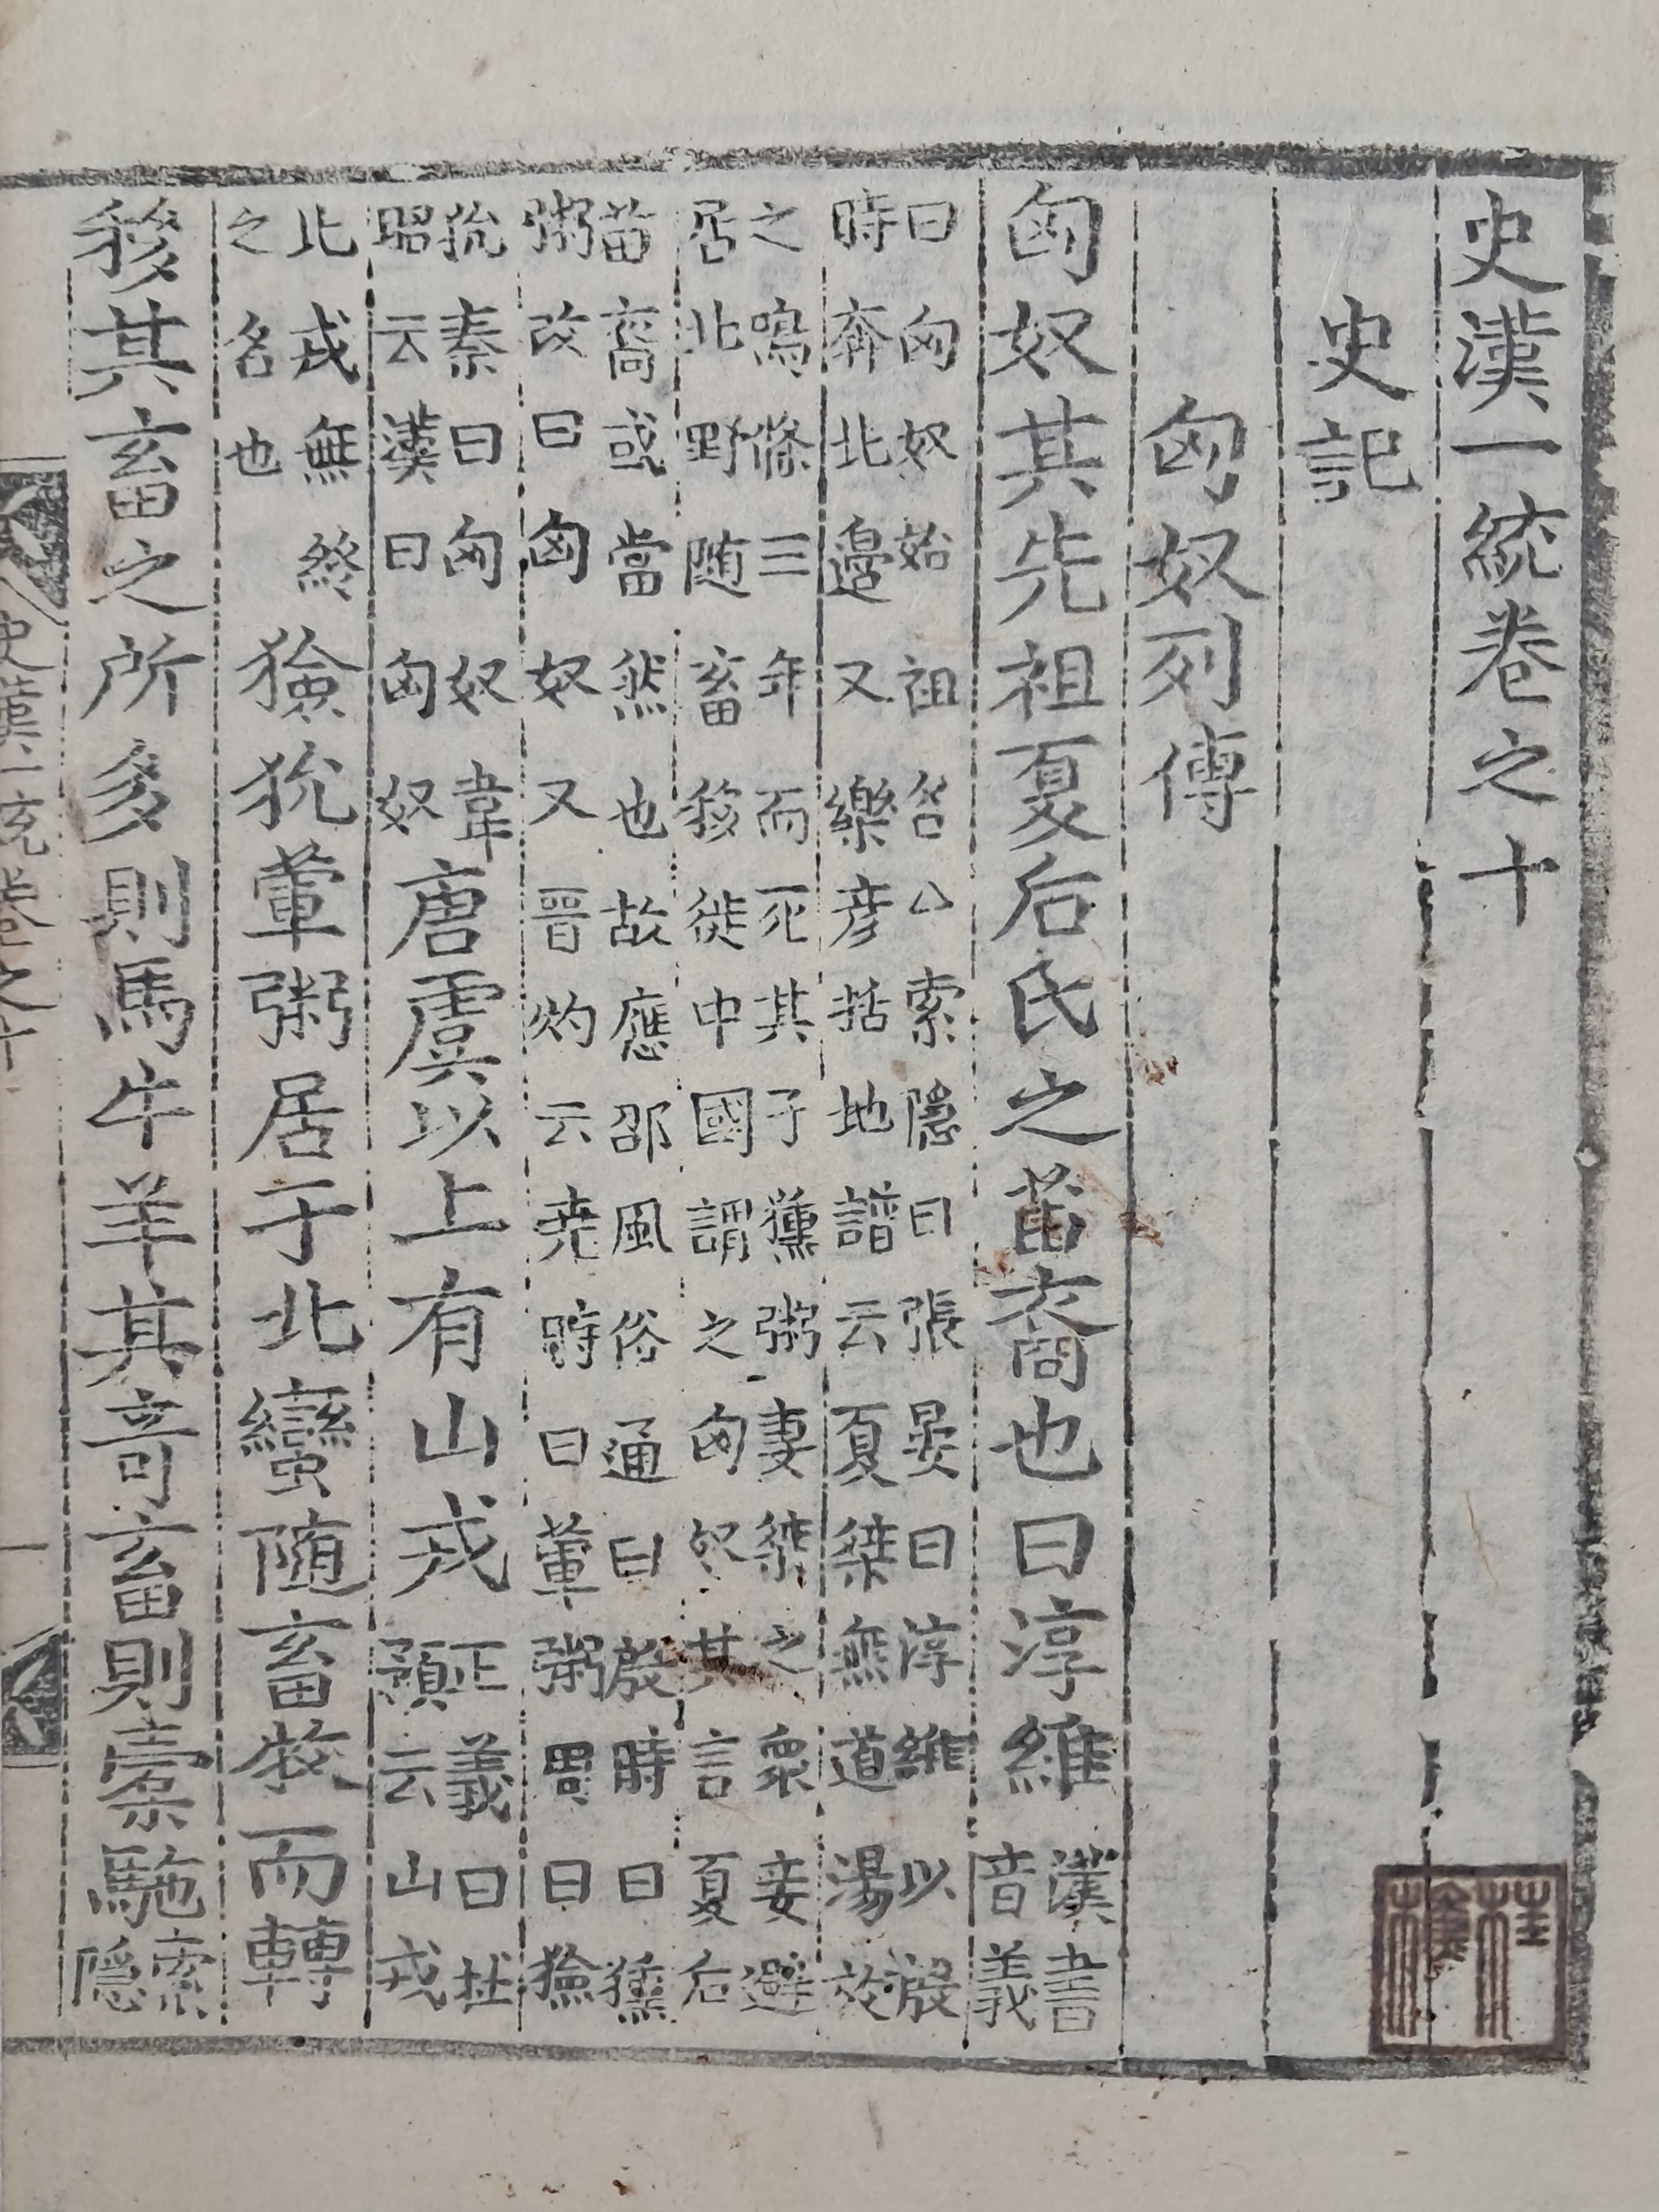 史漢一統卷之十
史記
匈奴列傳
匈奴其先祖夏后氏之苗裔也曰淳維漢書音義
曰匈奴始祖名公索隱曰張晏曰淳維以殷
時奔北邊又樂彦括地譜云夏桀無道湯放
之鳴條三年而死其子獯粥妻桀之衆妾避
居北野随畜移徙中國謂之匈奴其言夏后
苗裔或當然也故應邵風俗通曰殷時曰獯
粥改曰匈奴又晉灼云尭時曰葷粥周曰獫
狁秦曰匈奴韋昭云漢曰匈奴唐虞以上有山戎正義曰杜預云山戎
北戎無終之名也獫狁葷粥居于北蠻随畜牧而轉
移其畜之所多則馬牛羊其竒畜則橐駞索隱
史漢一統卷之十
一